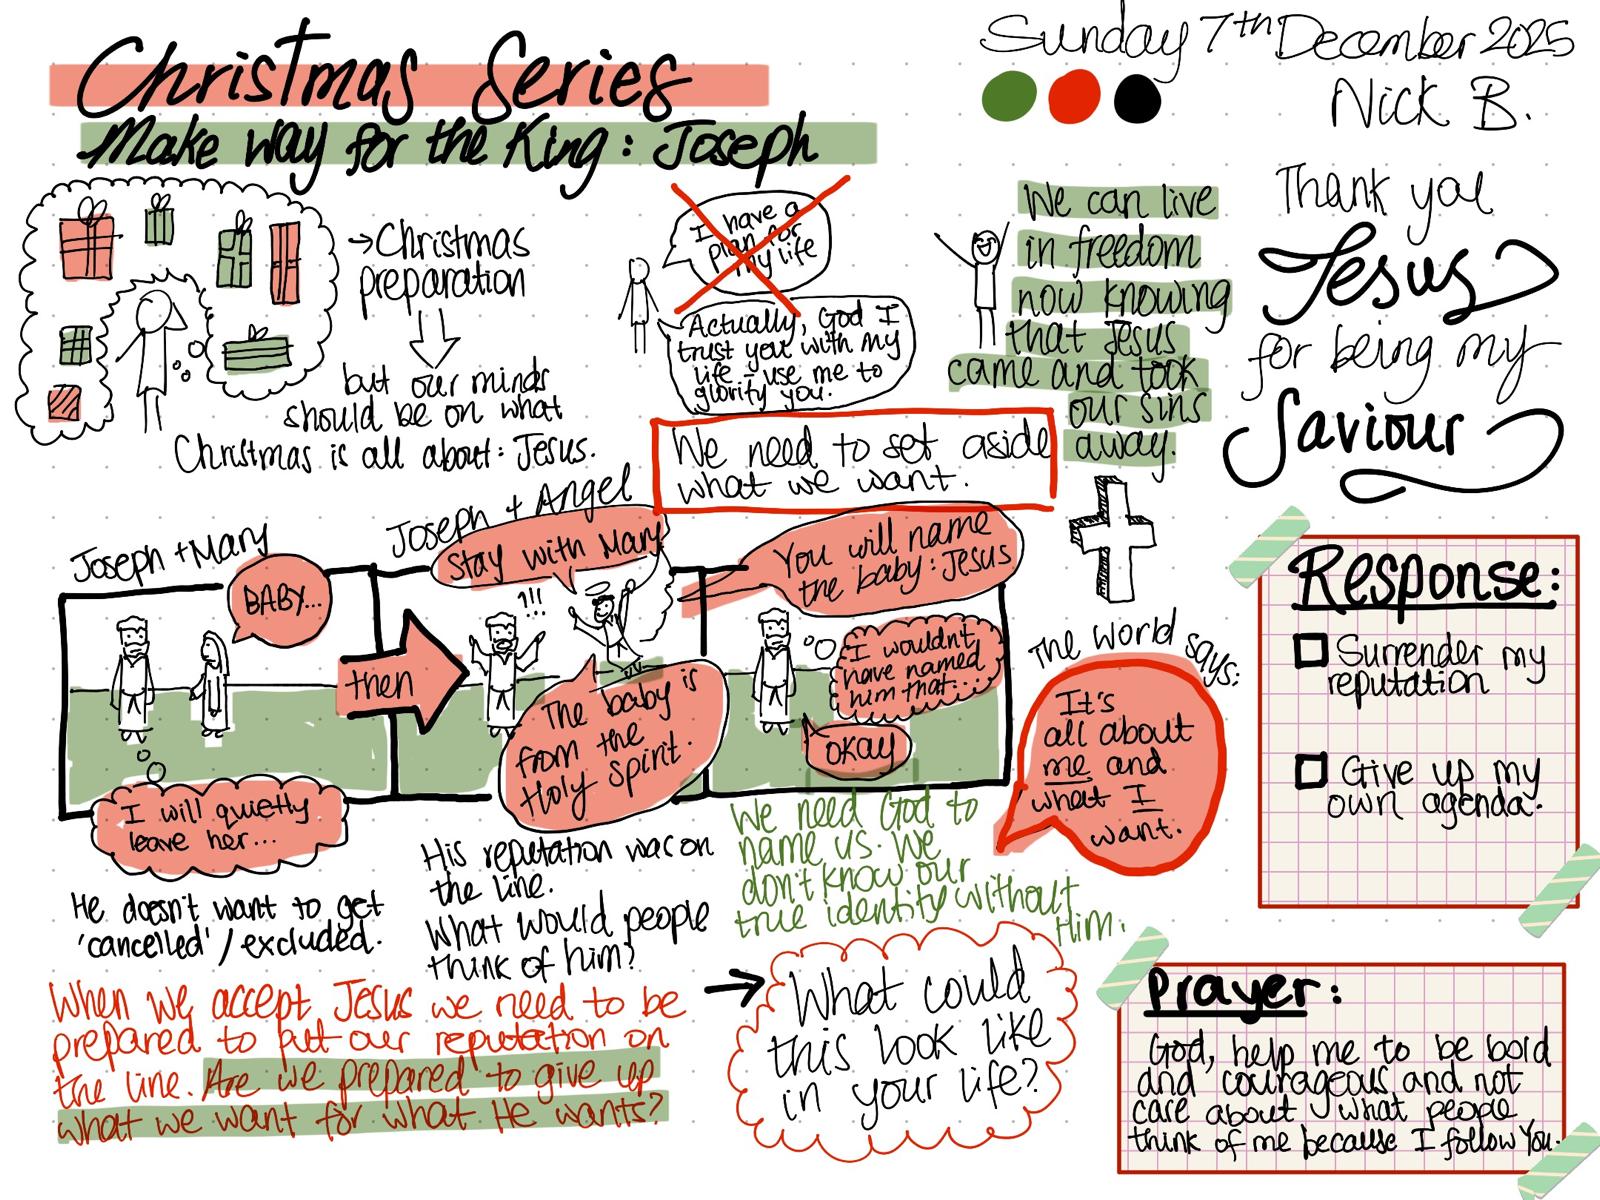 Christmas Series
Make way for the King: Joseph
Sunday 7th December 2025
Nick B.
→Christmas
preparation
but our minds
should be on what
Christmas is all about: Jesus.
I have a
plan for
my life
Actually, God I
trust you with my
life - use me to
glorify you.
We need to set aside
what we want.
We can live
in freedom
now knowing
that Jesus
came and took
our sins
away.
Thank you
Jesus
for being my
Saviour
Joseph + Mary
BABY...
I will quietly
leave her...
He doesn't want to get
'cancelled' / excluded.
then
Joseph + Angel
Stay with Mary
?!!!
The baby is
from the
Holy Spirit.
His reputation was on
the line.
What would people
think of him?
You will name
the baby: Jesus
I wouldn't
have named
him that...
OKAY
We need God to
name us. We
don't know our
true identity without
Him.
The world says:
It's
all about
me and
what I
want.
When we accept Jesus we need to be
prepared to put our reputation on
the line. Are we prepared to give up
what we want for what He wants?
→
What could
this look like
in your life?
Response:
Surrender my
reputation
Give up my
own agenda.
Prayer:
God, help me to be bold
and courageous and not
care about what people
think of me because I follow You.